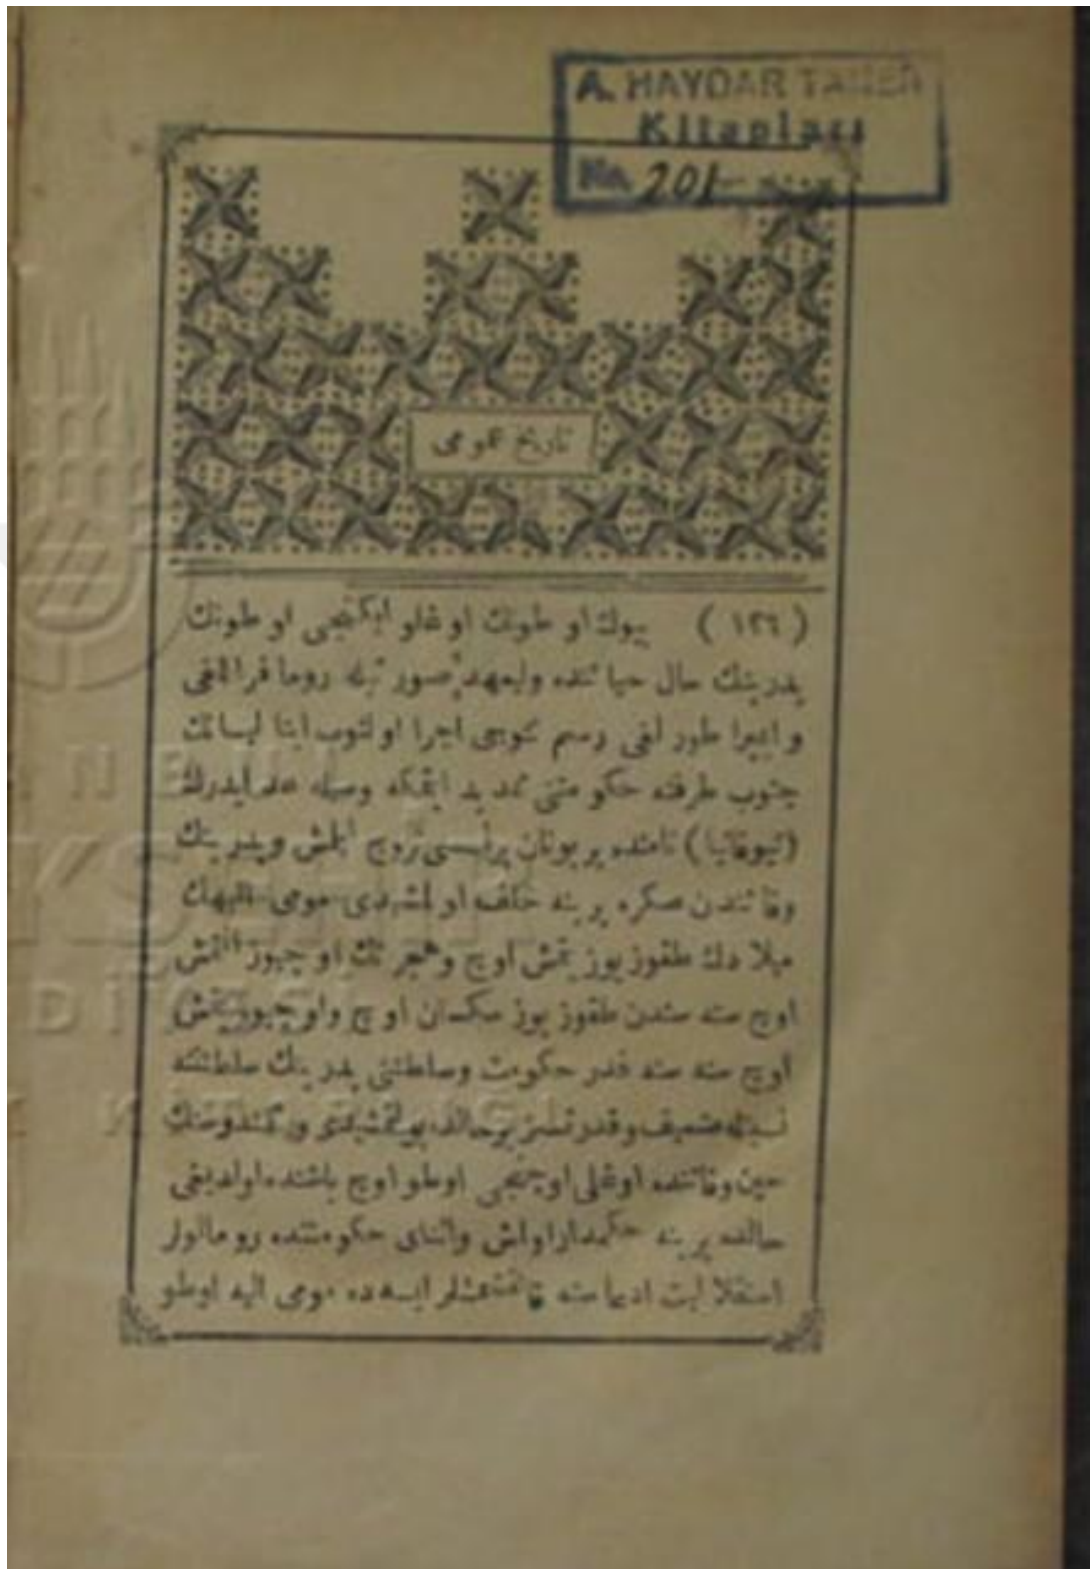 A. HAYDAR TANER
Kitapları
No. 201
تاريخ عمومى
(١٢٦) بيوك اوطونك اوغلو ايكنجى اوطونك
پدرينك حال حياتنده وليعهد صورتيله روما قراللغى
و ايپراطورلغى رسم تتويجى اجرا اولنوب ايتاليانك
جنوب طرفنه حكومتنى تمديد ايتمكه وسيله عد ايدرك
(تيوفانيا) نامنده بر يونان پرنسسى تزوج ايلمش وپدرينك
وفاتندن صكره يرينه خلف اولمشيدى مومى اليهك
ميلادك طقوزيوز يتمش اوچ وهجرتك اوچيوز التمش
اوچ سنه سندن طقوز يوز سكسان اوچ واوچيوز يتمش
اوچ سنه سنه قدر حكومت وسلطنتى پدرينك سلطنتنه
نسبتله ضعيف وقدرتسز برحالده بولنمشيدى وكندوسنك
حين وفاتنده اوغلى اوچنجى اوطو اوچ ياشنده اولديغى
حالده يرينه حكمدار اولمش واثناى حكومتنده رومالولر
استقلاليت ادعاسنه قالقمشلر ايسه ده مومى اليه اوطو